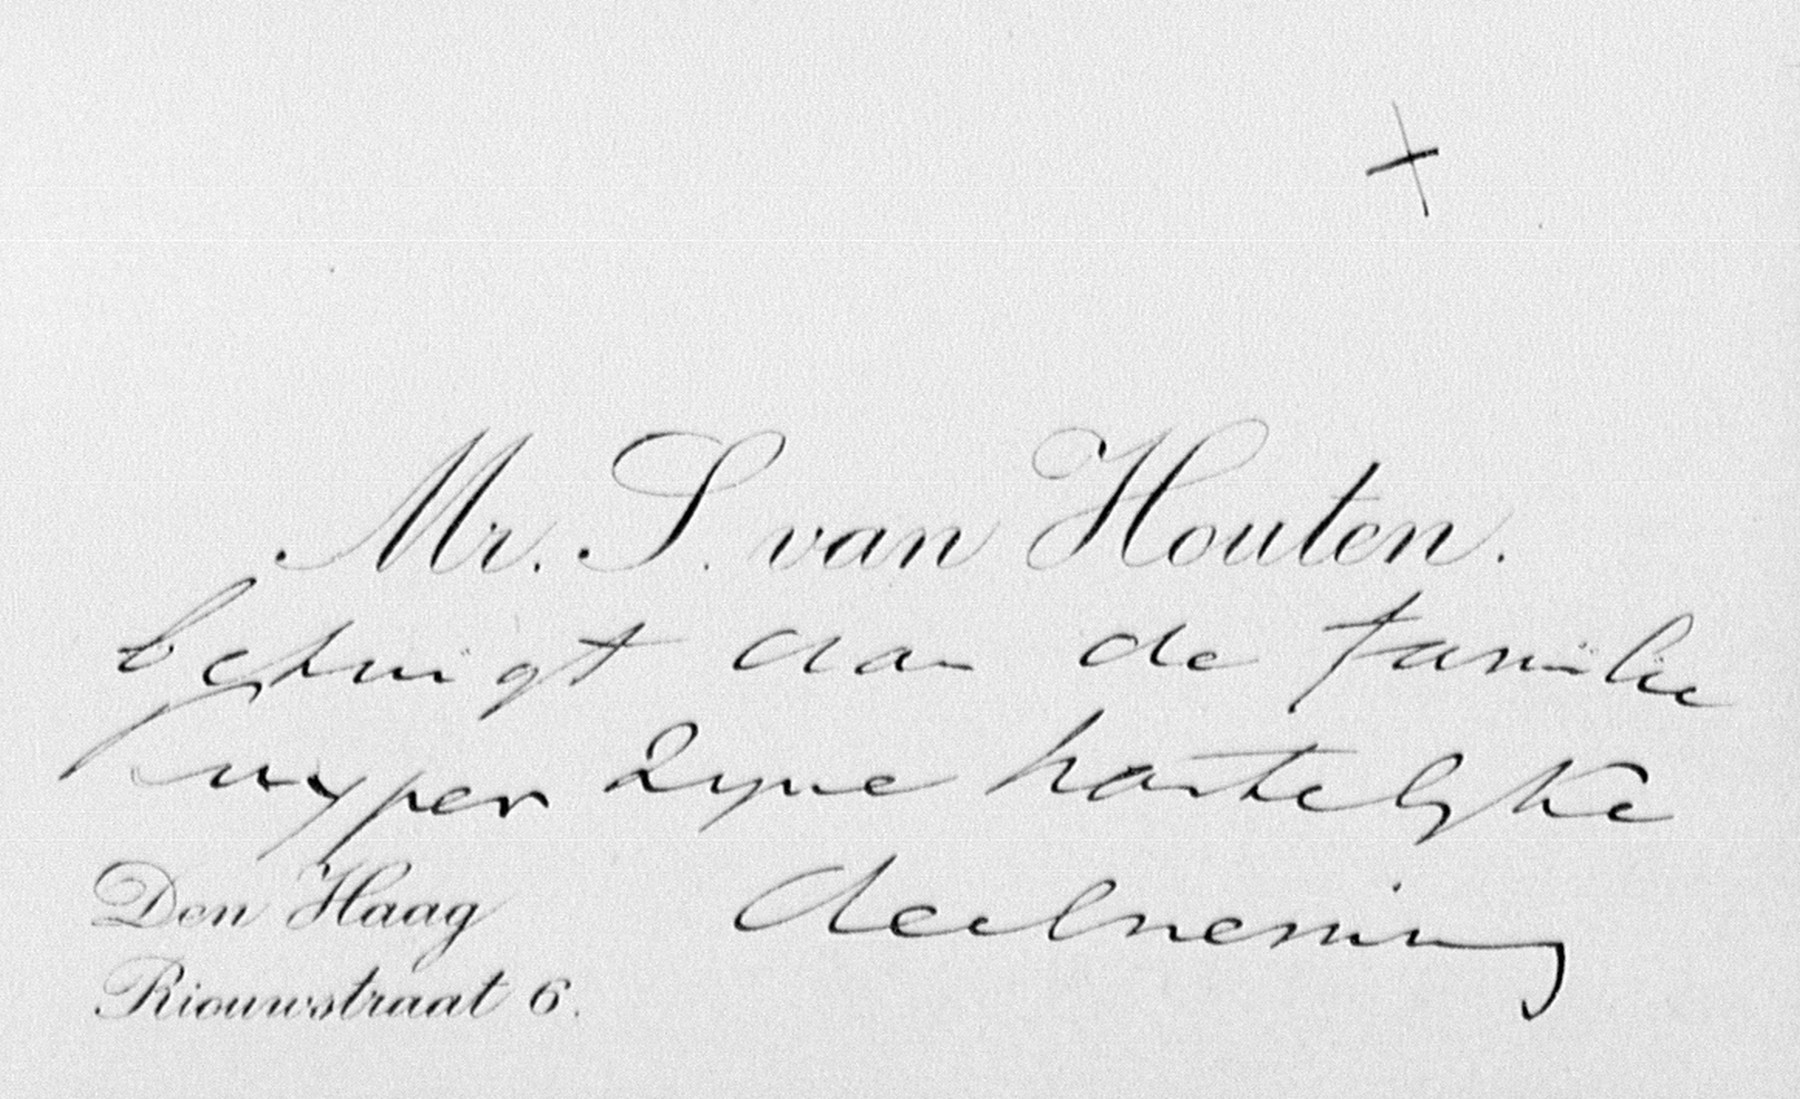 +
Mr. S. van Houten.
betuigt aan de familie
Kuyper zyne hartelyke
deelneming
Den Haag
Riouwstraat 6.